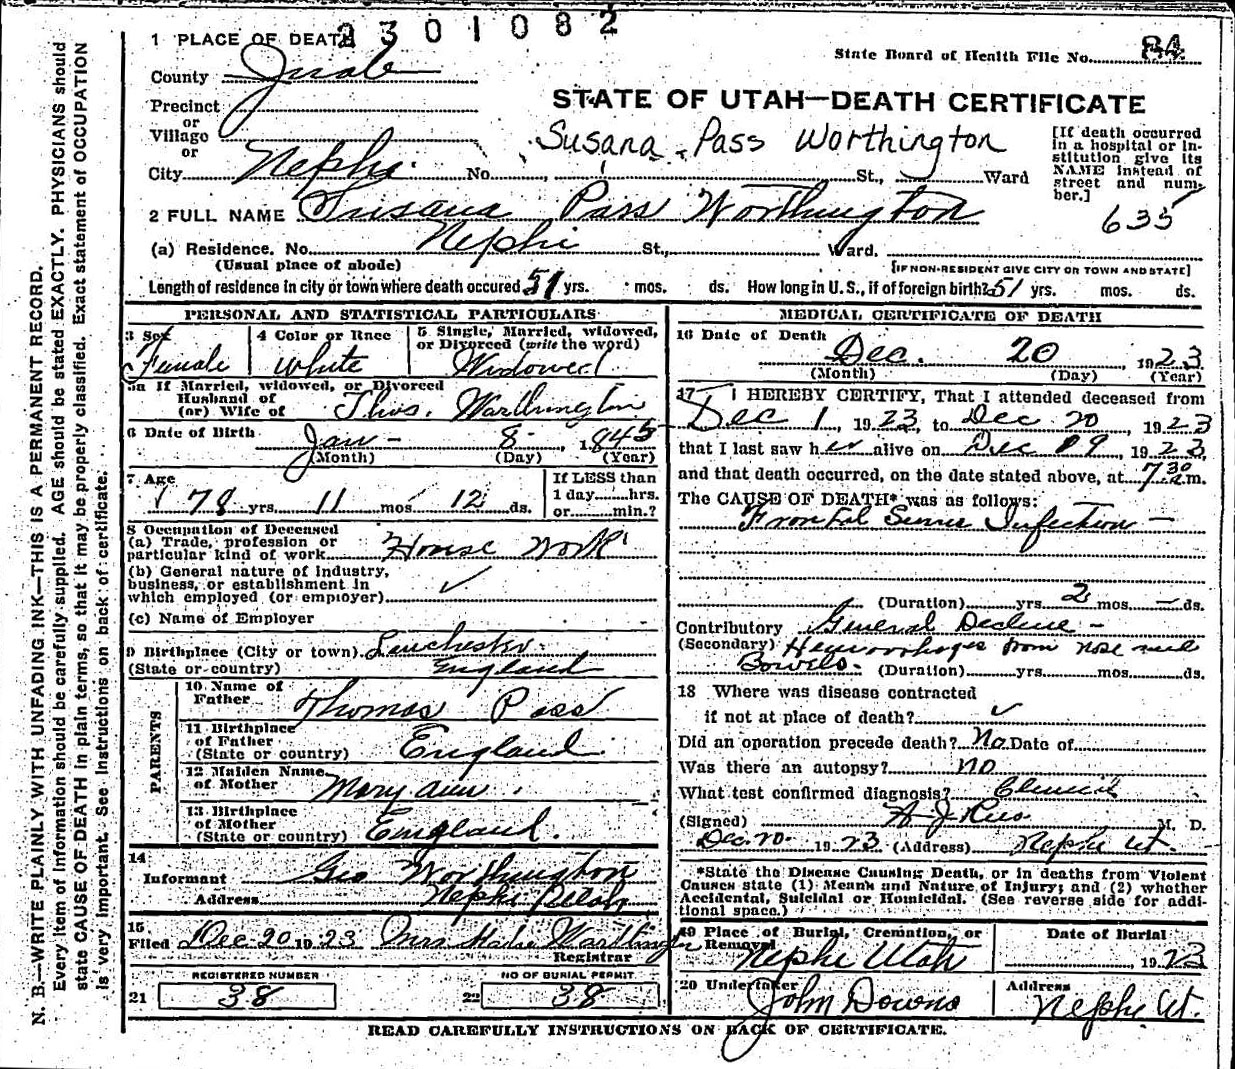 2301082
1 PLACE OF DEATH
State Board of Health File No. 84
County Juab
Precinct
or
Village
or
City Nephi No. St., Ward
STATE OF UTAH—DEATH CERTIFICATE
Susana Pass Worthington
[If death occurred in a hospital or institution give its NAME instead of street and number.]
635
2 FULL NAME Susana Pass Worthington
(a) Residence. No. Nephi St., Ward.
(Usual place of abode)
[IF NON-RESIDENT GIVE CITY OR TOWN AND STATE]
Length of residence in city or town where death occured 51 yrs. mos. ds. How long in U. S., if of foreign birth? 51 yrs. mos. ds.
PERSONAL AND STATISTICAL PARTICULARS
3 Sex Female
4 Color or Race White
5 Single, Married, widowed, or Divorced (write the word) Widowed
5a If Married, widowed, or Divorced
Husband of
(or) Wife of Thos. Worthington
6 Date of Birth Jan - 8 - 1845
(Month) (Day) (Year)
7 Age 78 yrs. 11 mos 12 ds.
If LESS than
1 day......hrs.
or......min.?
8 Occupation of Deceased
(a) Trade, profession or
particular kind of work House Work
(b) General nature of Industry,
business, or establishment in
which employed (or employer) ✓
(c) Name of Employer
9 Birthplace (City or town)
(State or country) England
PARENTS
10 Name of
Father Thomas Pass
11 Birthplace
of Father
(State or country) England
12 Maiden Name
of Mother Mary Ann
13 Birthplace
of Mother
(State or country) England.
14
Informant Geo Worthington
Address Nephi Utah
15
Filed Dec 20 1923 Mrs Worthington
Registrar
REGISTERED NUMBER
21 38
NO OF BURIAL PERMIT
22 38
MEDICAL CERTIFICATE OF DEATH
16 Date of Death
Dec. 20 1923
(Month) (Day) (Year)
17 I HEREBY CERTIFY, That I attended deceased from
Dec 1 1923, to Dec 20, 1923
that I last saw her alive on Dec 19, 1923,
and that death occurred, on the date stated above, at 7 30 a.m.
The CAUSE OF DEATH* was as follows:
Frontal Sinus Infection —
(Duration) yrs. 2 mos. — ds.
Contributory General Decline —
(Secondary) Hemorrhages from nose and
Bowels. (Duration) yrs. mos. ds.
18 Where was disease contracted
if not at place of death? ✓
Did an operation precede death? No. Date of
Was there an autopsy? no
What test confirmed diagnosis? Clinical
(Signed) M. D.
Dec. 20. 1923 (Address) Nephi Ut.
*State the Disease Causing Death, or in deaths from Violent
Causes state (1) Means and Nature of Injury; and (2) whether
Accidental, Suicidal or Homicidal. (See reverse side for additional space.)
19 Place of Burial, Cremation, or
Removal Nephi Utah
Date of Burial
1923
20 Undertaker
John Downs
Address
Nephi Ut.
READ CAREFULLY INSTRUCTIONS ON BACK OF CERTIFICATE.
N. B.—WRITE PLAINLY WITH UNFADING INK—THIS IS A PERMANENT RECORD.
Every item of information should be carefully supplied. AGE should be stated EXACTLY. PHYSICIANS should
state CAUSE OF DEATH in plain terms, so that it may be properly classified. Exact statement of OCCUPATION
is very important. See Instructions on back of certificate.